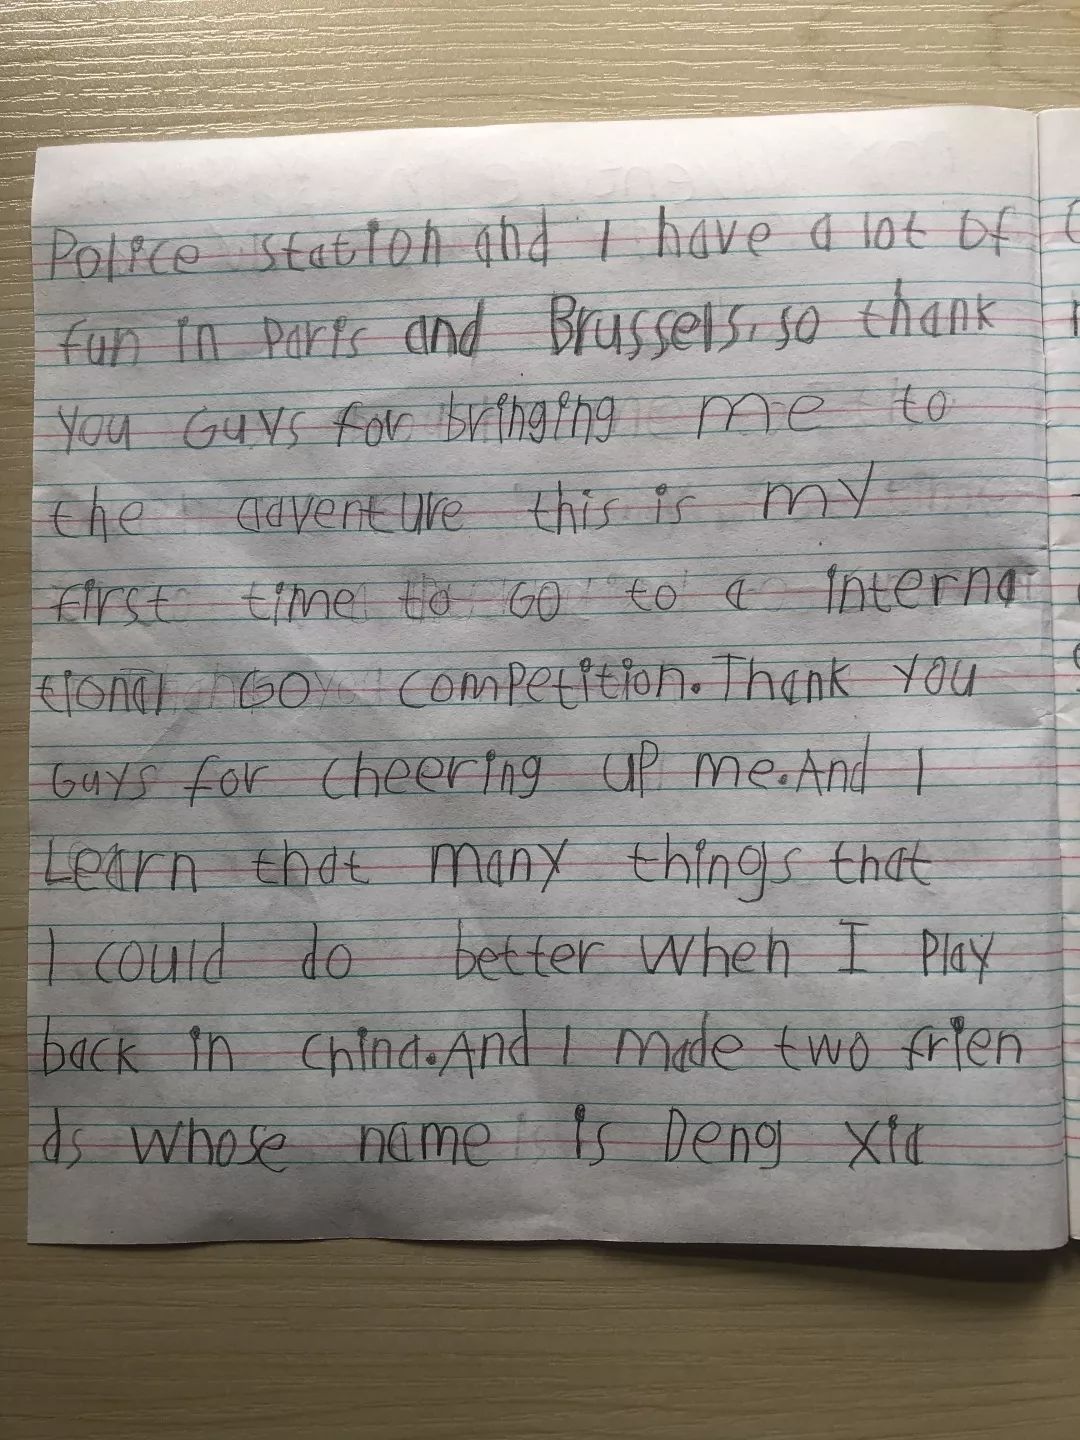 Police station and I have a lot of
fun in Paris and Brussels, so thank
you Guys for bringing me to
the adventure this is my
first time to GO to a interna
tional GO competition. Thank you
Guys for cheering up me. And I
Learn that many things that
I could do better when I play
back in china. And I made two frien
ds whose name is Deng Xia